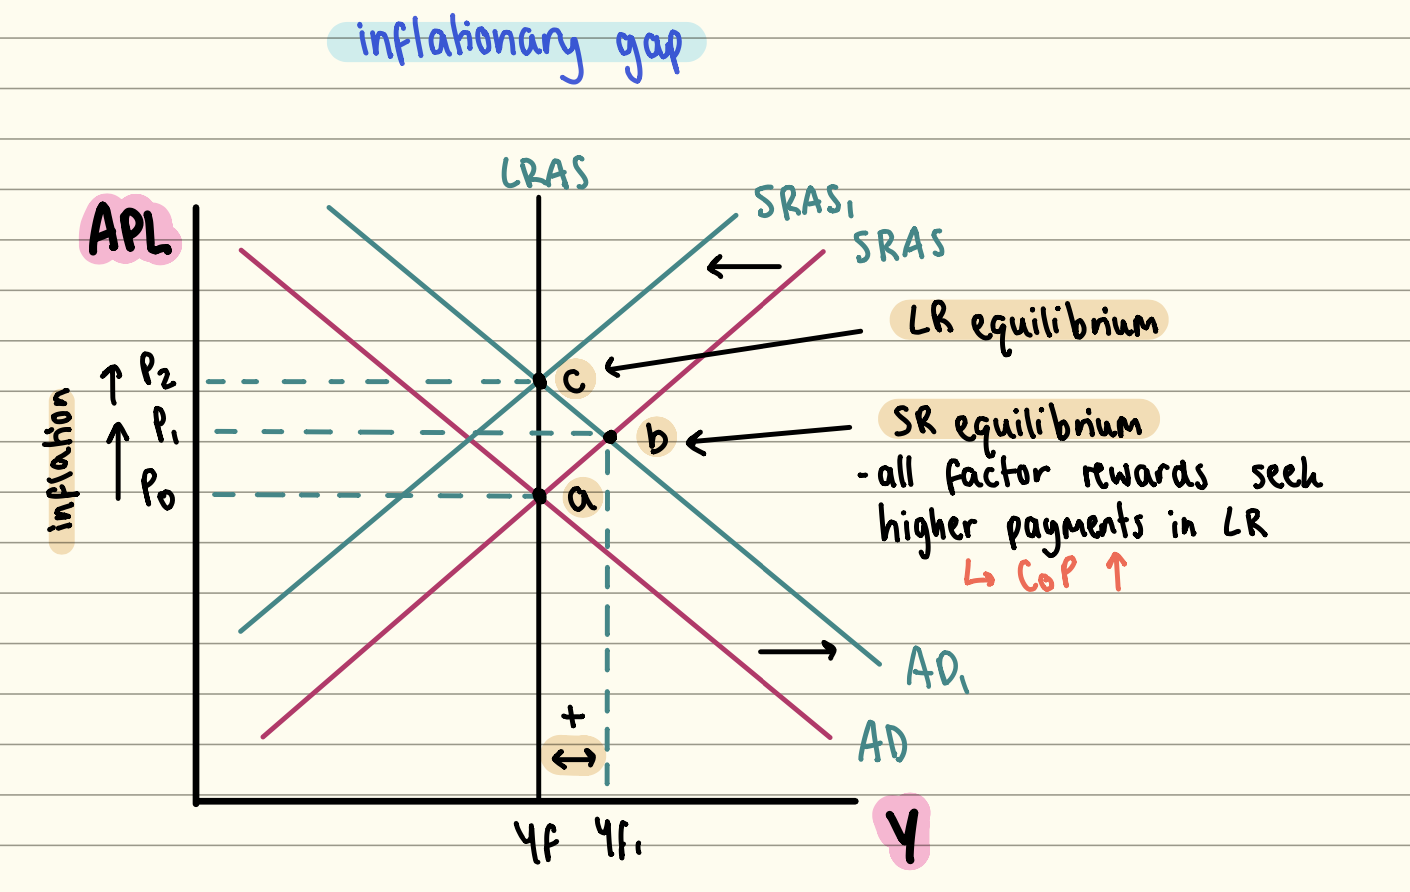 inflationary gap
LRAS
SRAS₁
SRAS
APL
LR equilibrium
P₂
c
P₁
inflation
SR equilibrium
b
- all factor rewards seek
P₀
a
higher payments in LR
↳ COP ↑
AD₁
+
AD
Yf
Yf₁
Y